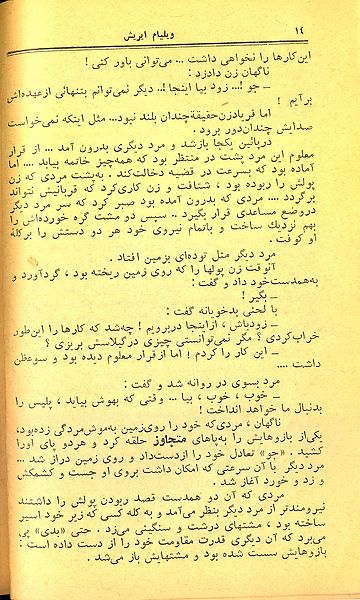 ۱٤
ویلیام ایریش
این‌کارها را نخواهی داشت ... می‌توانی باور کنی !
ناگهان زن دادزد :
ـ جو !... زود بیا اینجا !.. دیگر نمی‌توانم بتنهائی ازعهده‌اش
برآیم !
اما فریادزن‌حقیقةچندان بلند نبود... مثل اینکه نمی‌خواست
صدایش چندان‌دور برود .
درپائین یکجا بازشد و مرد دیگری بدرون آمد ... از قرار
معلوم این مرد پشت در منتظر بود که همه‌چیز خاتمه بیابد .... اما
آماده بود که بسرعت در قضیه دخالت‌کند . به‌پشت مردی که زن
پولش را ربوده بود ، شتافت و زن کاری‌کرد که قربانیش نتواند
برگردد .... مردی که بدرون آمده بود صبر کرد که سر مرد دیگر
دروضع مساعدی قرار بگیرد .. سپس دو مشت گره خورده‌اش را
بهم نزدیك ساخت و باتمام نیروی خود هر دو دستش را برکلهٔ
او کوفت .
مرد دیگر مثل توده‌ای بزمین افتاد .
آنوقت زن پولها را که روی زمین ریخته بود ، گردآورد و
به‌همدست‌خود داد و گفت :
ـ بگیر !
با لحنی بدخویانه گفت :
ـ زودباش ، ازاینجا دربرویم ! چه‌شد که کارها را این‌طور
خراب‌کردی ؟ مگر نمی‌توانستی چیزی درگیلاسش بریزی ؟
ـ این کار را کردم ! اما ازقرار معلوم دیده بود و سوءظن
داشت ....
مرد بسوی در روانه شد و گفت :
ـ خوب ، خوب ، بیا ... وقتی که بهوش بیاید ، پلیس را
بدنبال ما خواهد انداخت !
ناگهان ، مردی‌که خود را روی‌زمین به‌موش‌مردگی زده‌بود،
یکی‌از بازوهایش را به‌پاهای متجاوز حلقه کرد و هردو پای اورا
کشید . «جو» تعادل خود را ازدست‌داد و روی زمین دراز شد ...
مرد دیگر با آن سرعتی که امکان داشت بروی او جست و کشمکش
و زد و خورد آغاز شد .
مردی که آن دو همدست قصد ربودن پولش را داشتند
نیرومندتر از مرد دیگر بنظر می‌آمد و به کله کسی که زیر خود اسیر
ساخته بود ، مشتهای درشت و سنگینی می‌زد . حتی «بدی» پی
می‌برد که آن دیگری قدرت مقاومت خود را از دست داده است :
بازوهایش سست شده بود و مشتهایش باز می‌شد .